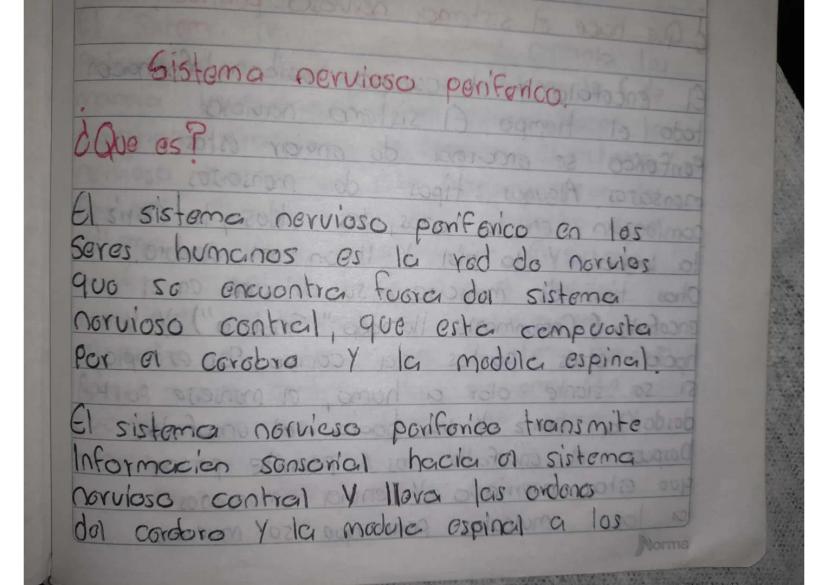 Sistema nervioso periferico.
¿Que es?
El sistema nervioso periferico en los
Seres humanos es la red de nervios
que se encuentra fuera del sistema
nervioso central, que esta compuesta
Por el cerebro y la medula espinal.
El sistema nervioso periferico transmite
Informacion sensorial hacia el sistema
nervioso central y lleva las ordenes
del cerebro y la medula espinal a los
Norma